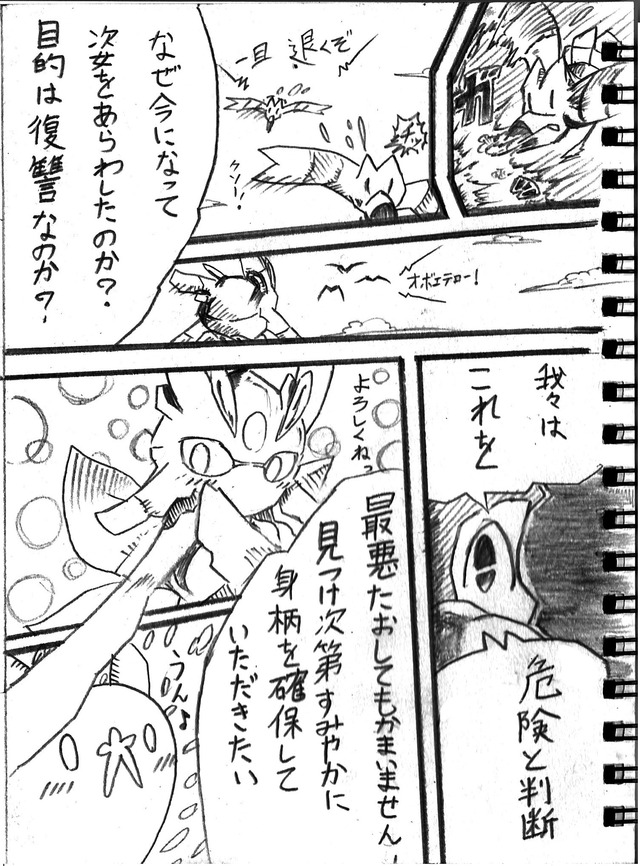 ガ
一旦 退くぞ
チッ
クソー!
なぜ今になって
姿をあらわしたのか?
目的は復讐なのか?
オボエテロー!
我々は
これを
危険と判断
よろしくねっ
最悪たおしてもかまいません、
見つけ次第すみやかに
身柄を確保して
いただきたい
うん♪